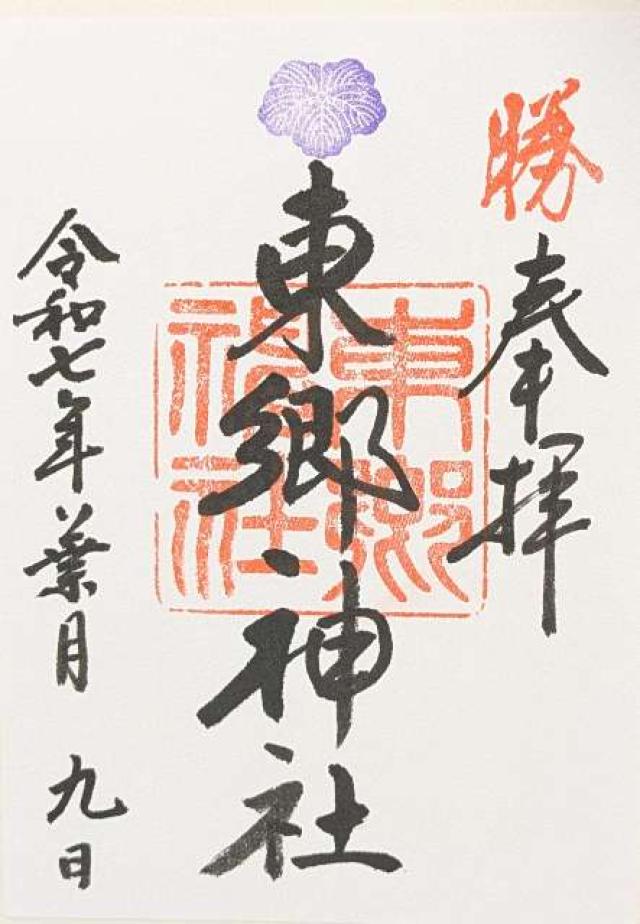 勝
奉拝
東郷神社
東郷神社
令和七年葉月 九日